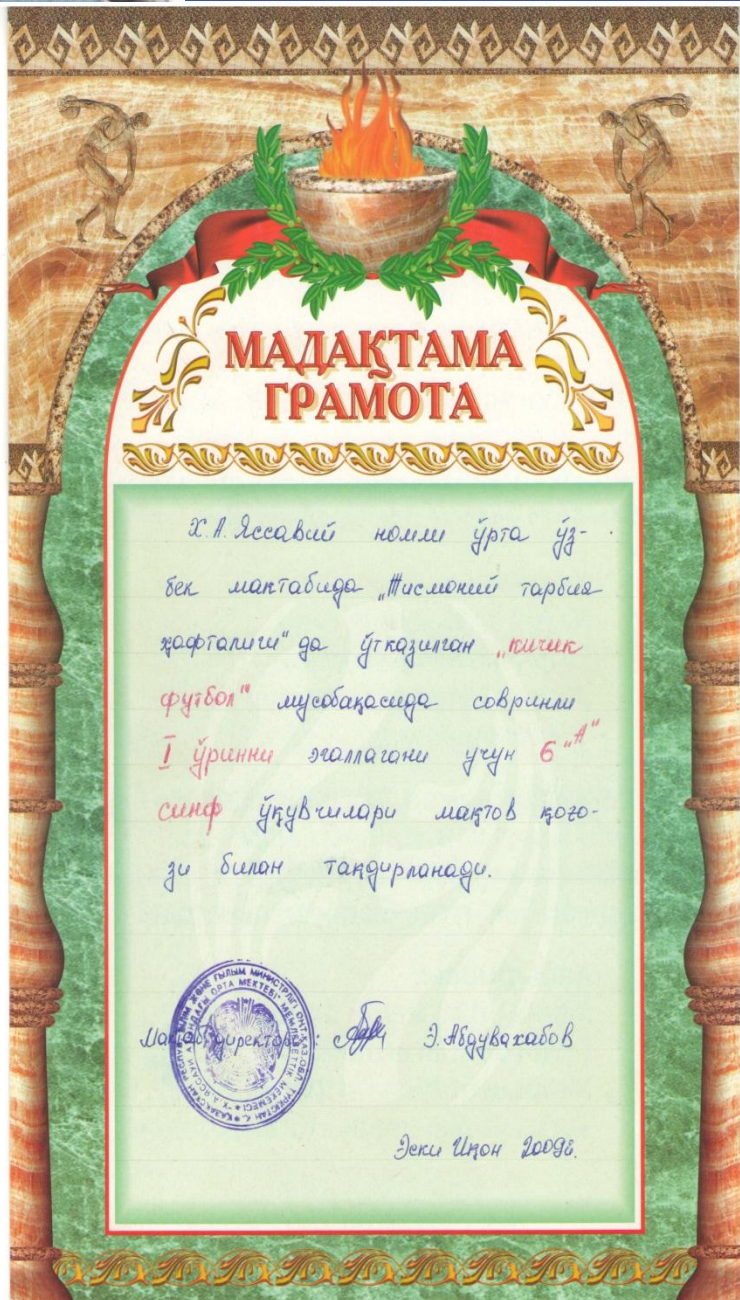 МАДАҚТАМА
ГРАМОТА
Х.А.Яссавий номли ўрта ўз-
бек мактабида „Жисмоний тарбия
ҳафталиги" да ўтказилган „кичик
футбол" мусобақасида совринли
I ўринни эгаллагани учун 6 "А"
синф ўқувчилари мақтов қоғо-
зи билан тақдирланади.
Мактаб директори: Э.Абдувахабов
Эски Иқон 2009й.